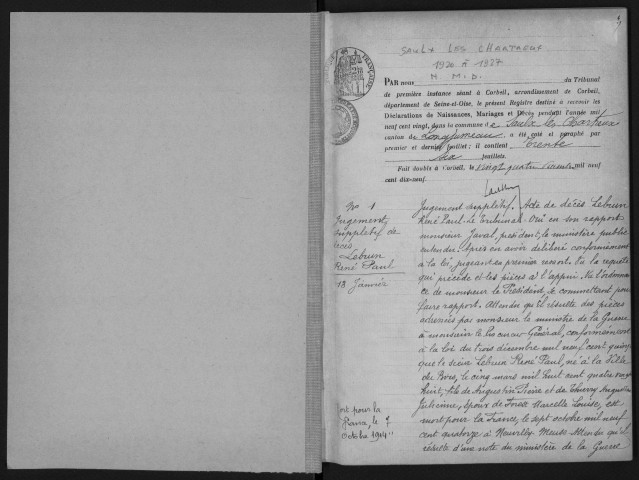 SAULX LES CHARTREUX
1920 à 1927
N. M. D.
PAR nous du Tribunal
de première instance séant à Corbeil, arrondissement de Corbeil,
département de Seine-et-Oise, le présent Registre destiné à recevoir les
Déclarations de Naissances, Mariages et Décès pendant l'année mil
neuf cent vingt, dans la commune de Saulx les Chartreux
canton de Longjumeau, a été coté et paraphé par
premier et dernier feuillet; il contient trente
six feuillets.
Fait double à Corbeil, le vingt quatre mil neuf
cent dix-neuf.
N° 1
Jugement
supplétif de
décès
Lebrun
René Paul
13 Janvier
Jugement supplétif. Acte de décès Lebrun
René Paul. Le Tribunal. Ouï en son rapport
monsieur Javal, président, le ministère public
entendu. Après en avoir délibéré conformément
à la loi, jugeant en premier ressort. Vu la requête
qui précède et les pièces à l'appui. Vu l'ordonnan
ce de monsieur le Président, le commettant pour
faire rapport. Attendu qu'il résulte des pièces
adressées par monsieur le ministre de la Guerre
à monsieur le Procureur Général, conformément
à la loi du trois décembre mil neuf cent quinze
que le sieur Lebrun René Paul, né à la Ville
du Bois, le cinq mars mil huit cent quatre vingt
huit, fils de Augustin Pierre et de Thierry Augustine
Julienne, époux de Forest Marcelle Louise, est
mort pour la France, le sept octobre mil neuf
cent quatorze à Neuvilly Meuse. Attendu qu'il
résulte d'une note du ministère de la Guerre
mort pour la
France, le 7
Octobre 1914"